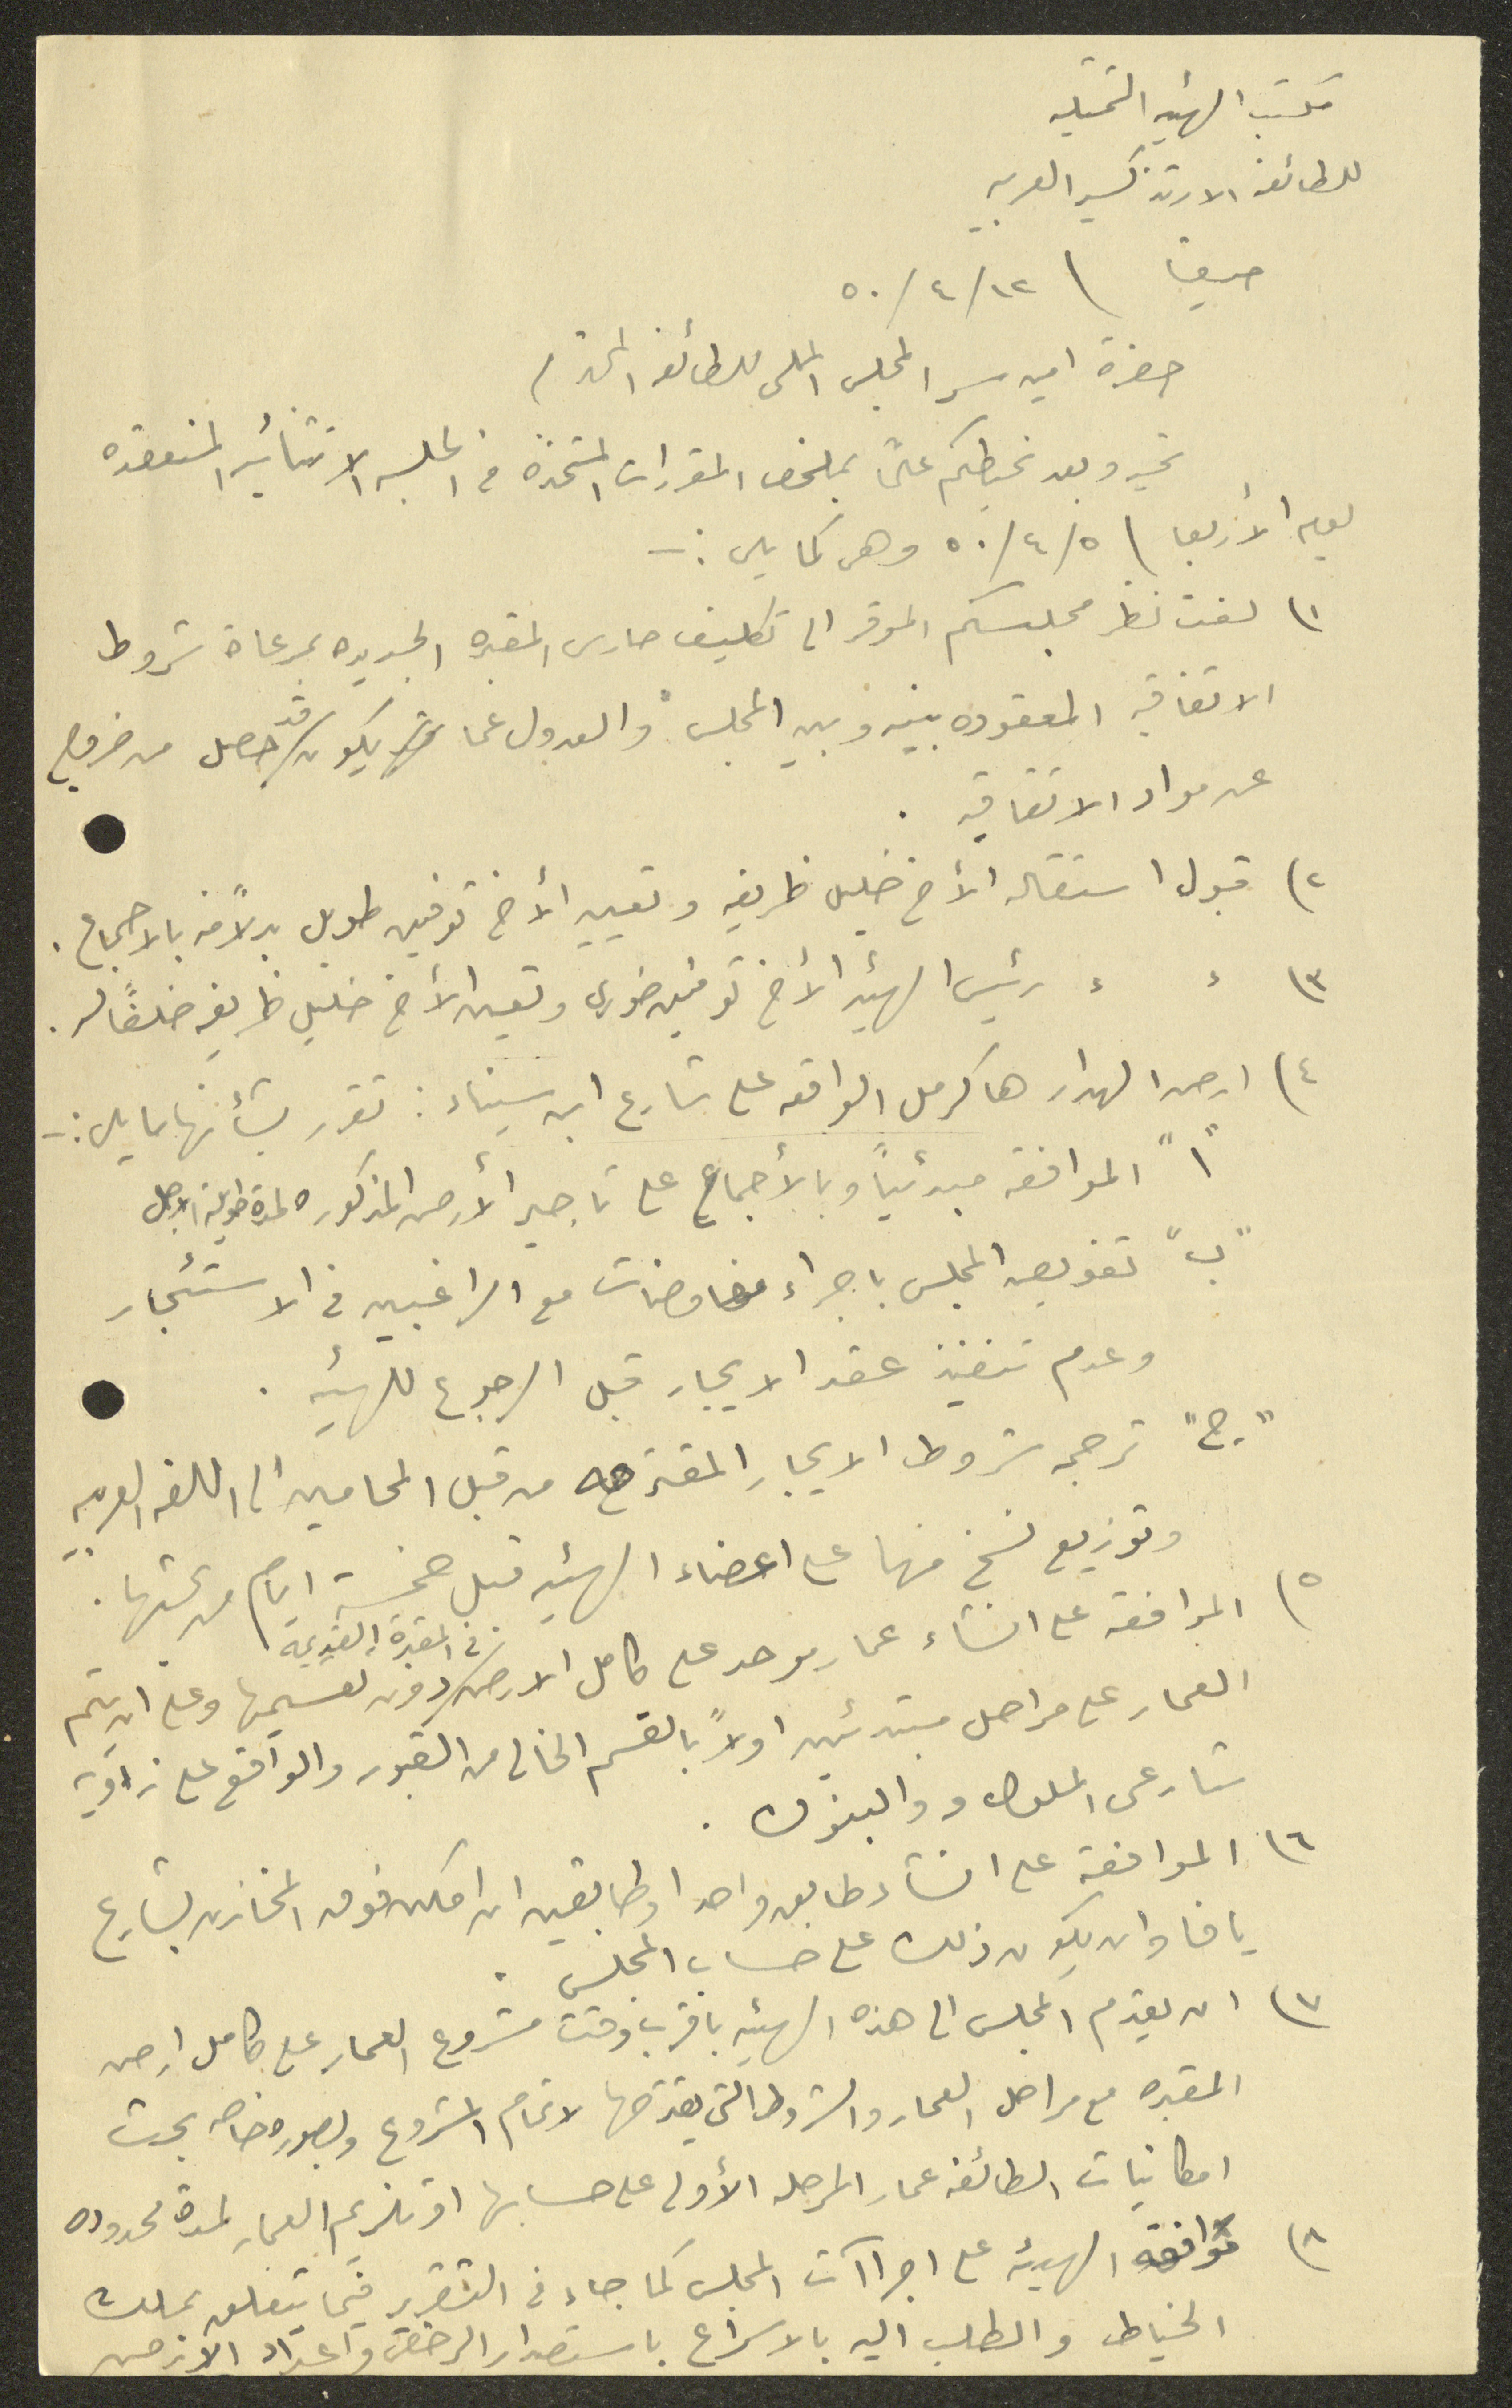 مكتب الهيئه التمثيليه
للطائفه الارثوذكسيه العربيه
حيفا ) ١٢/ ٤/ ٥٠
حضرة امين سر المجلس الملي للطائفه المحترم /
تحيه وبعد نحيطكم علمًا بملخص المقررات المتخذة في الجلسه الاستثنائيه المنعقده
يوم الأربعا ) ٥/ ٤/ ٥٠ وهي كما يلي :-
١) لفت نظر مجلسكم الموقر الى تكليف حارس المقبره الجديده بمرعاة شروط
الاتفاقيه المعقوده بينه وبين المجلس والعدول عما يكون قد حصل من خروج
عن مواد الاتفاقيه .
٢) قبول استقاله الأخ خليل ظريفه وتعيين الأخ توفيق طويل بدلاً منه بالاجماع .
٣) ء ء رئيس الهيئه الأخ توفيق خوري وتعيين الأخ خليل ظريفه خلفًا له .
٤) ارض الهدار هاكرمل الواقعه على شارع ابن سيناء : تقرر بشأنها ما يلي :-
"ا" الموافقه مبدئيًا وبالأجماع على تاجير الأرض المذكوره لمدة طويلة الاجل
"ب" تفويض المجلس باجراء مفاوضات مع الراغبين في الاستئجار
وعدم تنفيذ عقد الايجار قبل الرجوع للهيئه .
"ج" ترجمه شروط الايجار المقترحه من قبل المحامين الى اللغه العربيه
وتوزيع نسخ منها على اعضاء الهيئه قبل خمسة ايام من بحثها .
٥) الموافقه على انشاء عمار موحد على كامل الارض في المقبرة القديمة دون تقسيمها وعلى ان يتم
العمار على مراحل مبتدئين اولاً بالقسم الخالي من القبور والواقع على زاوية
شارعي الملوك و والبنوك .
٦) الموافقة على انشاء طابق واحد او طابقين ان امكن فوق المخازن بشارع
يافا وان يكون ذلك على حساب المجلس .
٧) ان يقدم المجلس الى هذه الهيئه باقرب وقت مشروع العمار على كامل ارض
المقبره مع مراحل العمار والشروط التي يقترحها لاتمام المشروع وبصوره خاصه بحث
امكانيات الطائفه عمار المرحله الأولى على حسابها او تلزيم العمار لمدة محدوده
٨) موافقة الهيئه على اجراآت المجلس كما جاء في التقرير فيما يتعلق بملك
الخياط والطلب اليه بالاسراع باستصدار الرخص واعداد الارض